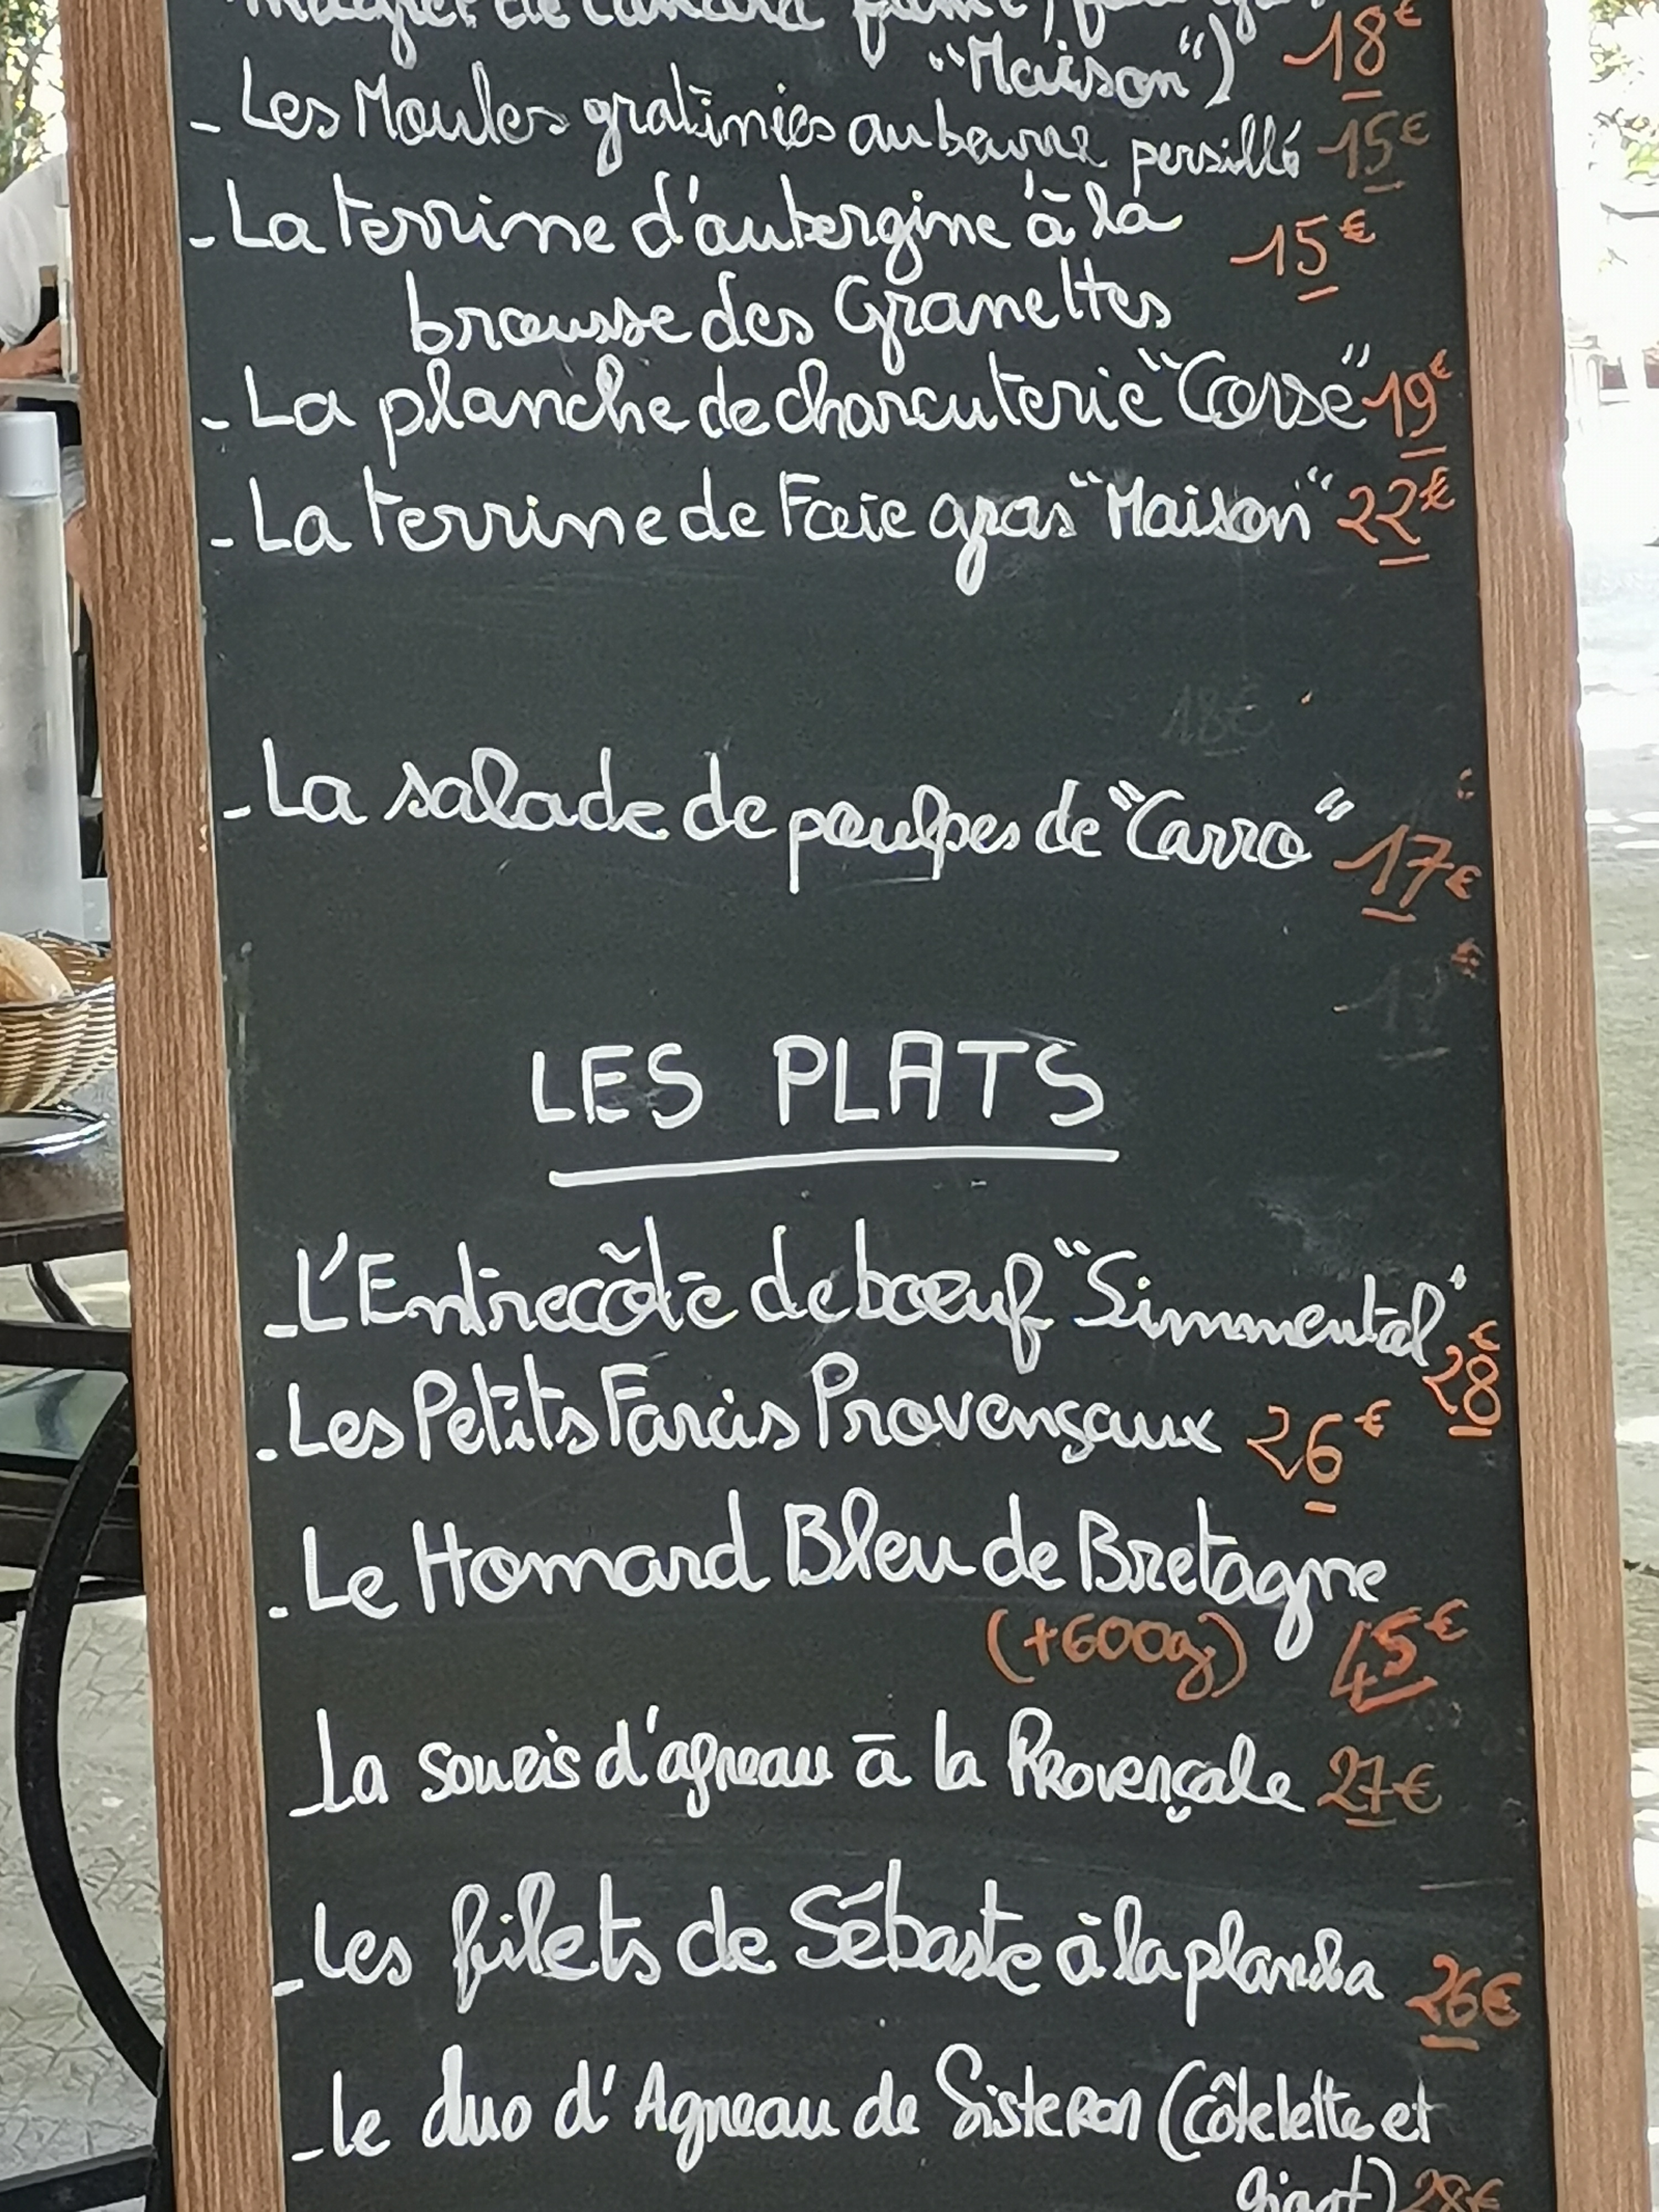 magret de canard fumé,
"Maison") 18€
- Les Moules gratinées au beurre persillé 15€
- La terrine d'aubergine à la 15€
brousse des Granettes
- La planche de charcuterie "Corse" 19€
- La terrine de Foie gras "Maison" 22€
18€
- La salade de poulpes de "Carro" 17€
LES PLATS
- L'Entrecôte de bœuf "Simmental" 28€
- Les Petits Farcis Provençaux 26€
- Le Homard Bleu de Bretagne
(+600g) 45€
- La souris d'agneau à la Provençale 27€
- Les filets de Sébaste à la plancha 26€
- le duo d'Agneau de Sisteron (côtelette et
gigot) 28€